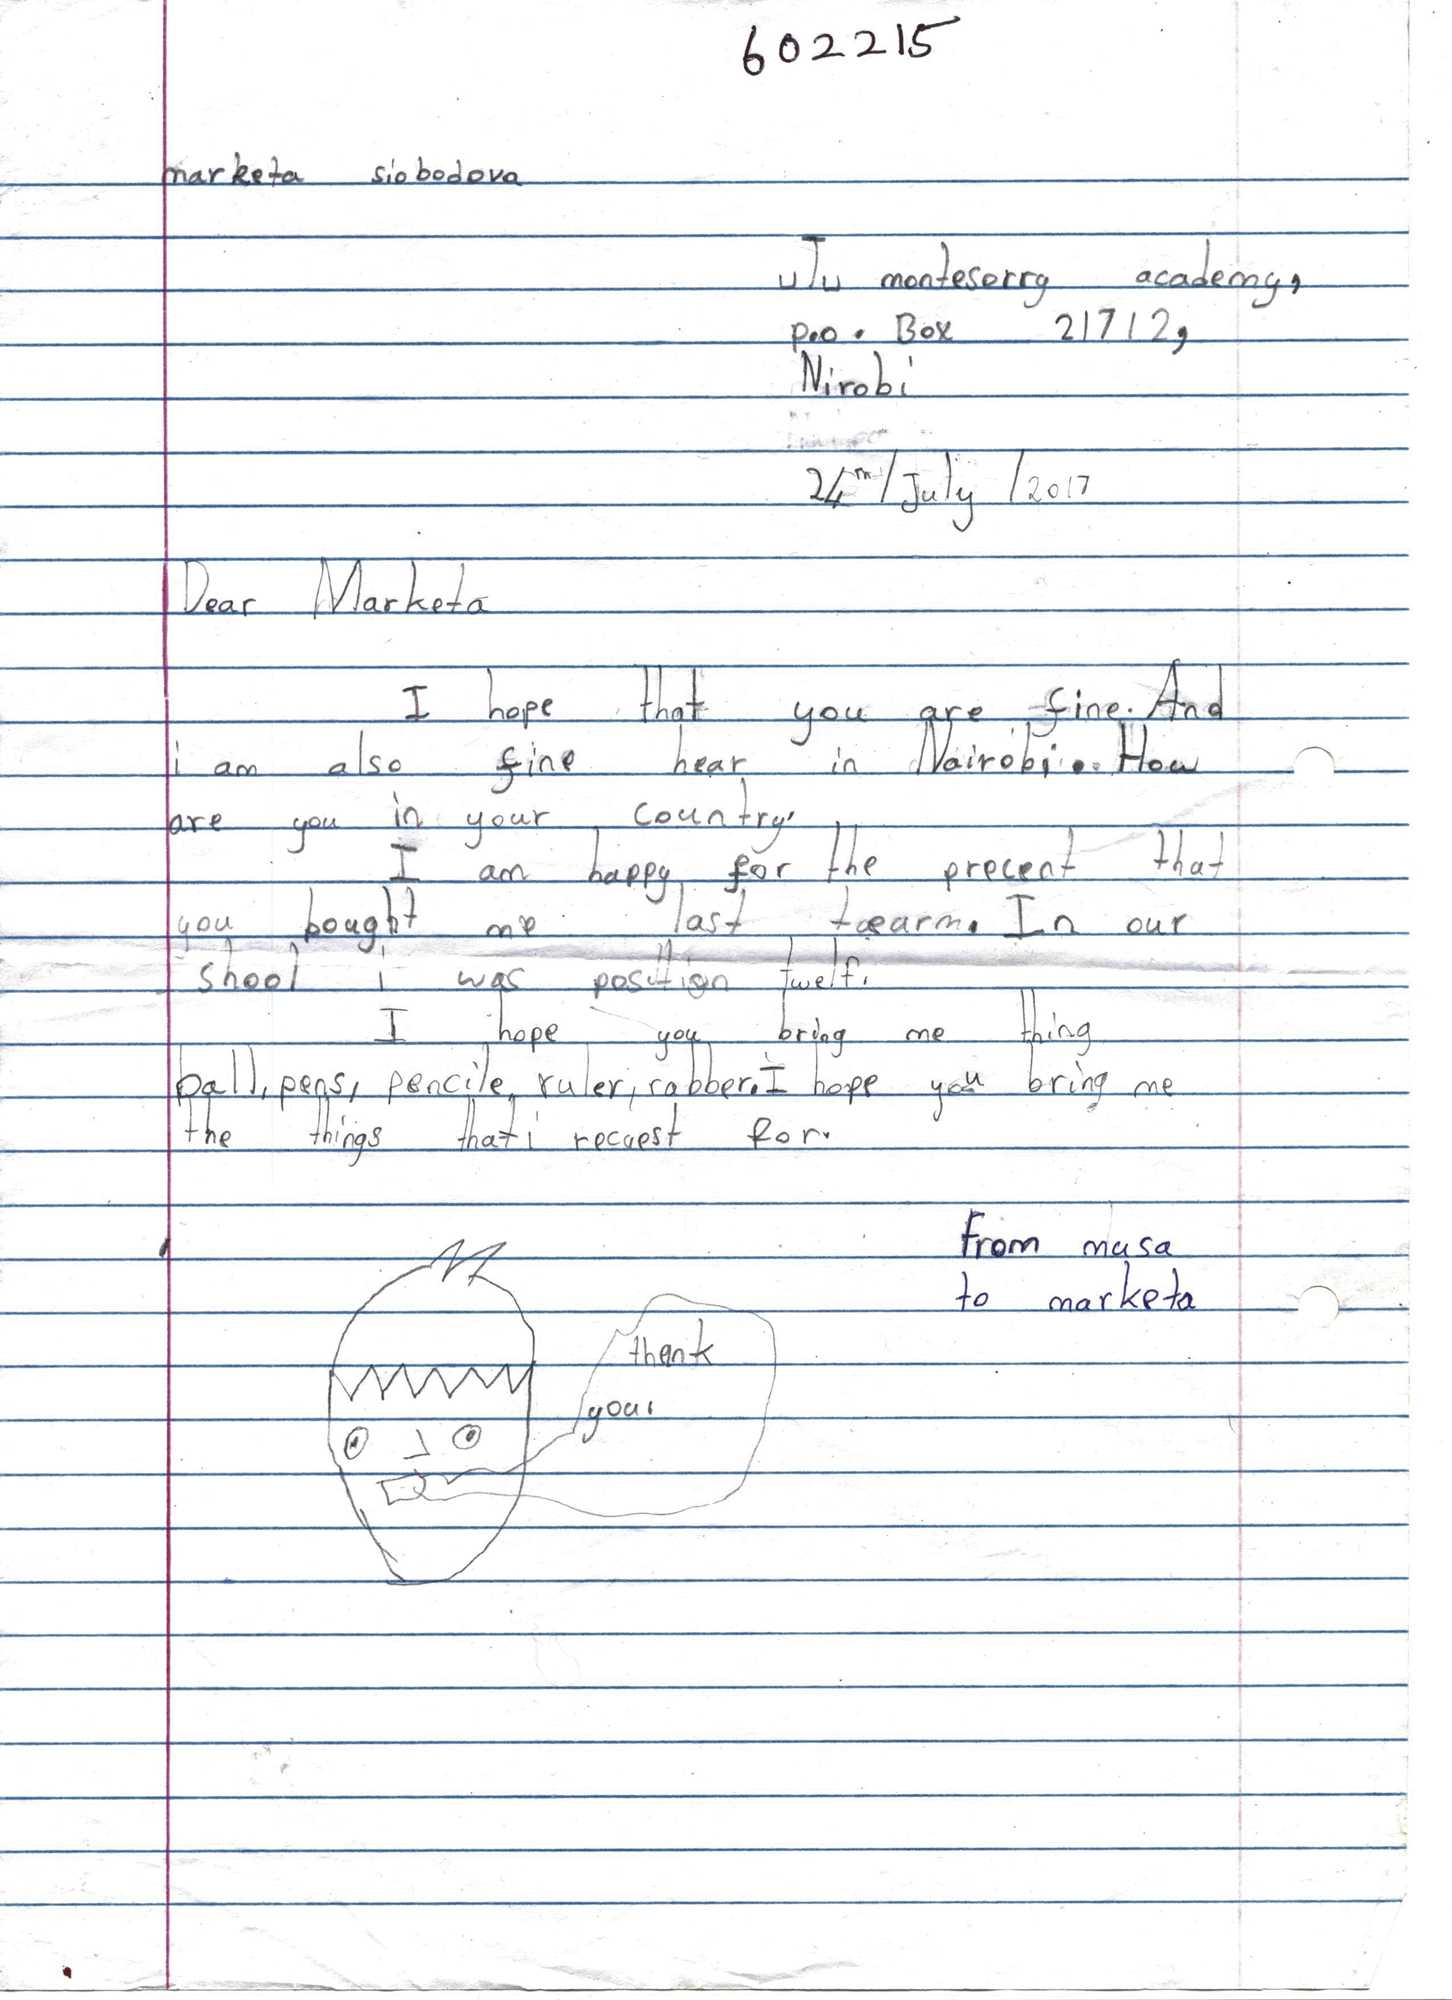 602215
marketa siobodova
uTu montesorry academy,
p.o. Box 21712,
Nirobi
24th/July/2017
Dear Marketa
I hope that you are fine. And
i am also fine hear in Nairobi. How
are you in your country.
I am happy for the precent that
you bought me last tearm. In our
shool i was position twelf.
I hope you bring me thing
ball, pens, pencile, ruler, rabber. I hope you bring me
the things that i recuest for.
From musa
to marketa
thank
you.